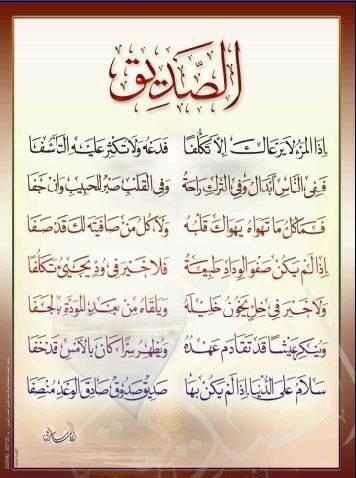 الصَّدِيق
إِذَا المَرْءُ لاَ يَرْعَاكَ إِلاَّ تَكَلُّفًا فَدَعْهُ وَلاَ تُكْثِرْ عَلَيْهِ التَّأَسُّفَا
فَفِي النَّاسِ أَبْدَالٌ وَفِي التَّرْكِ رَاحَةٌ وَفِي القَلْبِ صَبْرٌ لِلْحَبِيبِ وَإِنْ جَفَا
فَمَا كُلُّ مَا تَهْوَاهُ يَهْوَاكَ قَلْبُهُ وَلاَ كُلُّ مَنْ صَافَيْتَهُ لَكَ قَدْ صَفَا
إِذَا لَمْ يَكُنْ صَفْوُ الوِدَادِ طَبِيعَةً فَلاَ خَيْرَ فِي وُدٍّ يَجِيئُ تَكَلُّفَا
وَلاَ خَيْرَ فِي خِلٍّ يَخُونُ خَلِيلَهُ وَيَلْقَاهُ مِنْ بَعْدِ المَوَدَّةِ بِالجَفَا
وَيُنْكِرُ عَيْشًا قَدْ تَقَادَمَ عَهْدُهُ وَيُظْهِرُ سِرًّا كَانَ بِالأَمْسِ قَدْ خَفَا
سَلاَمٌ عَلَى الدُّنْيَا إِذَا لَمْ يَكُنْ بِهَا صَدِيقٌ صَدُوقٌ صَادِقُ الوَعْدِ مُنْصِفَا